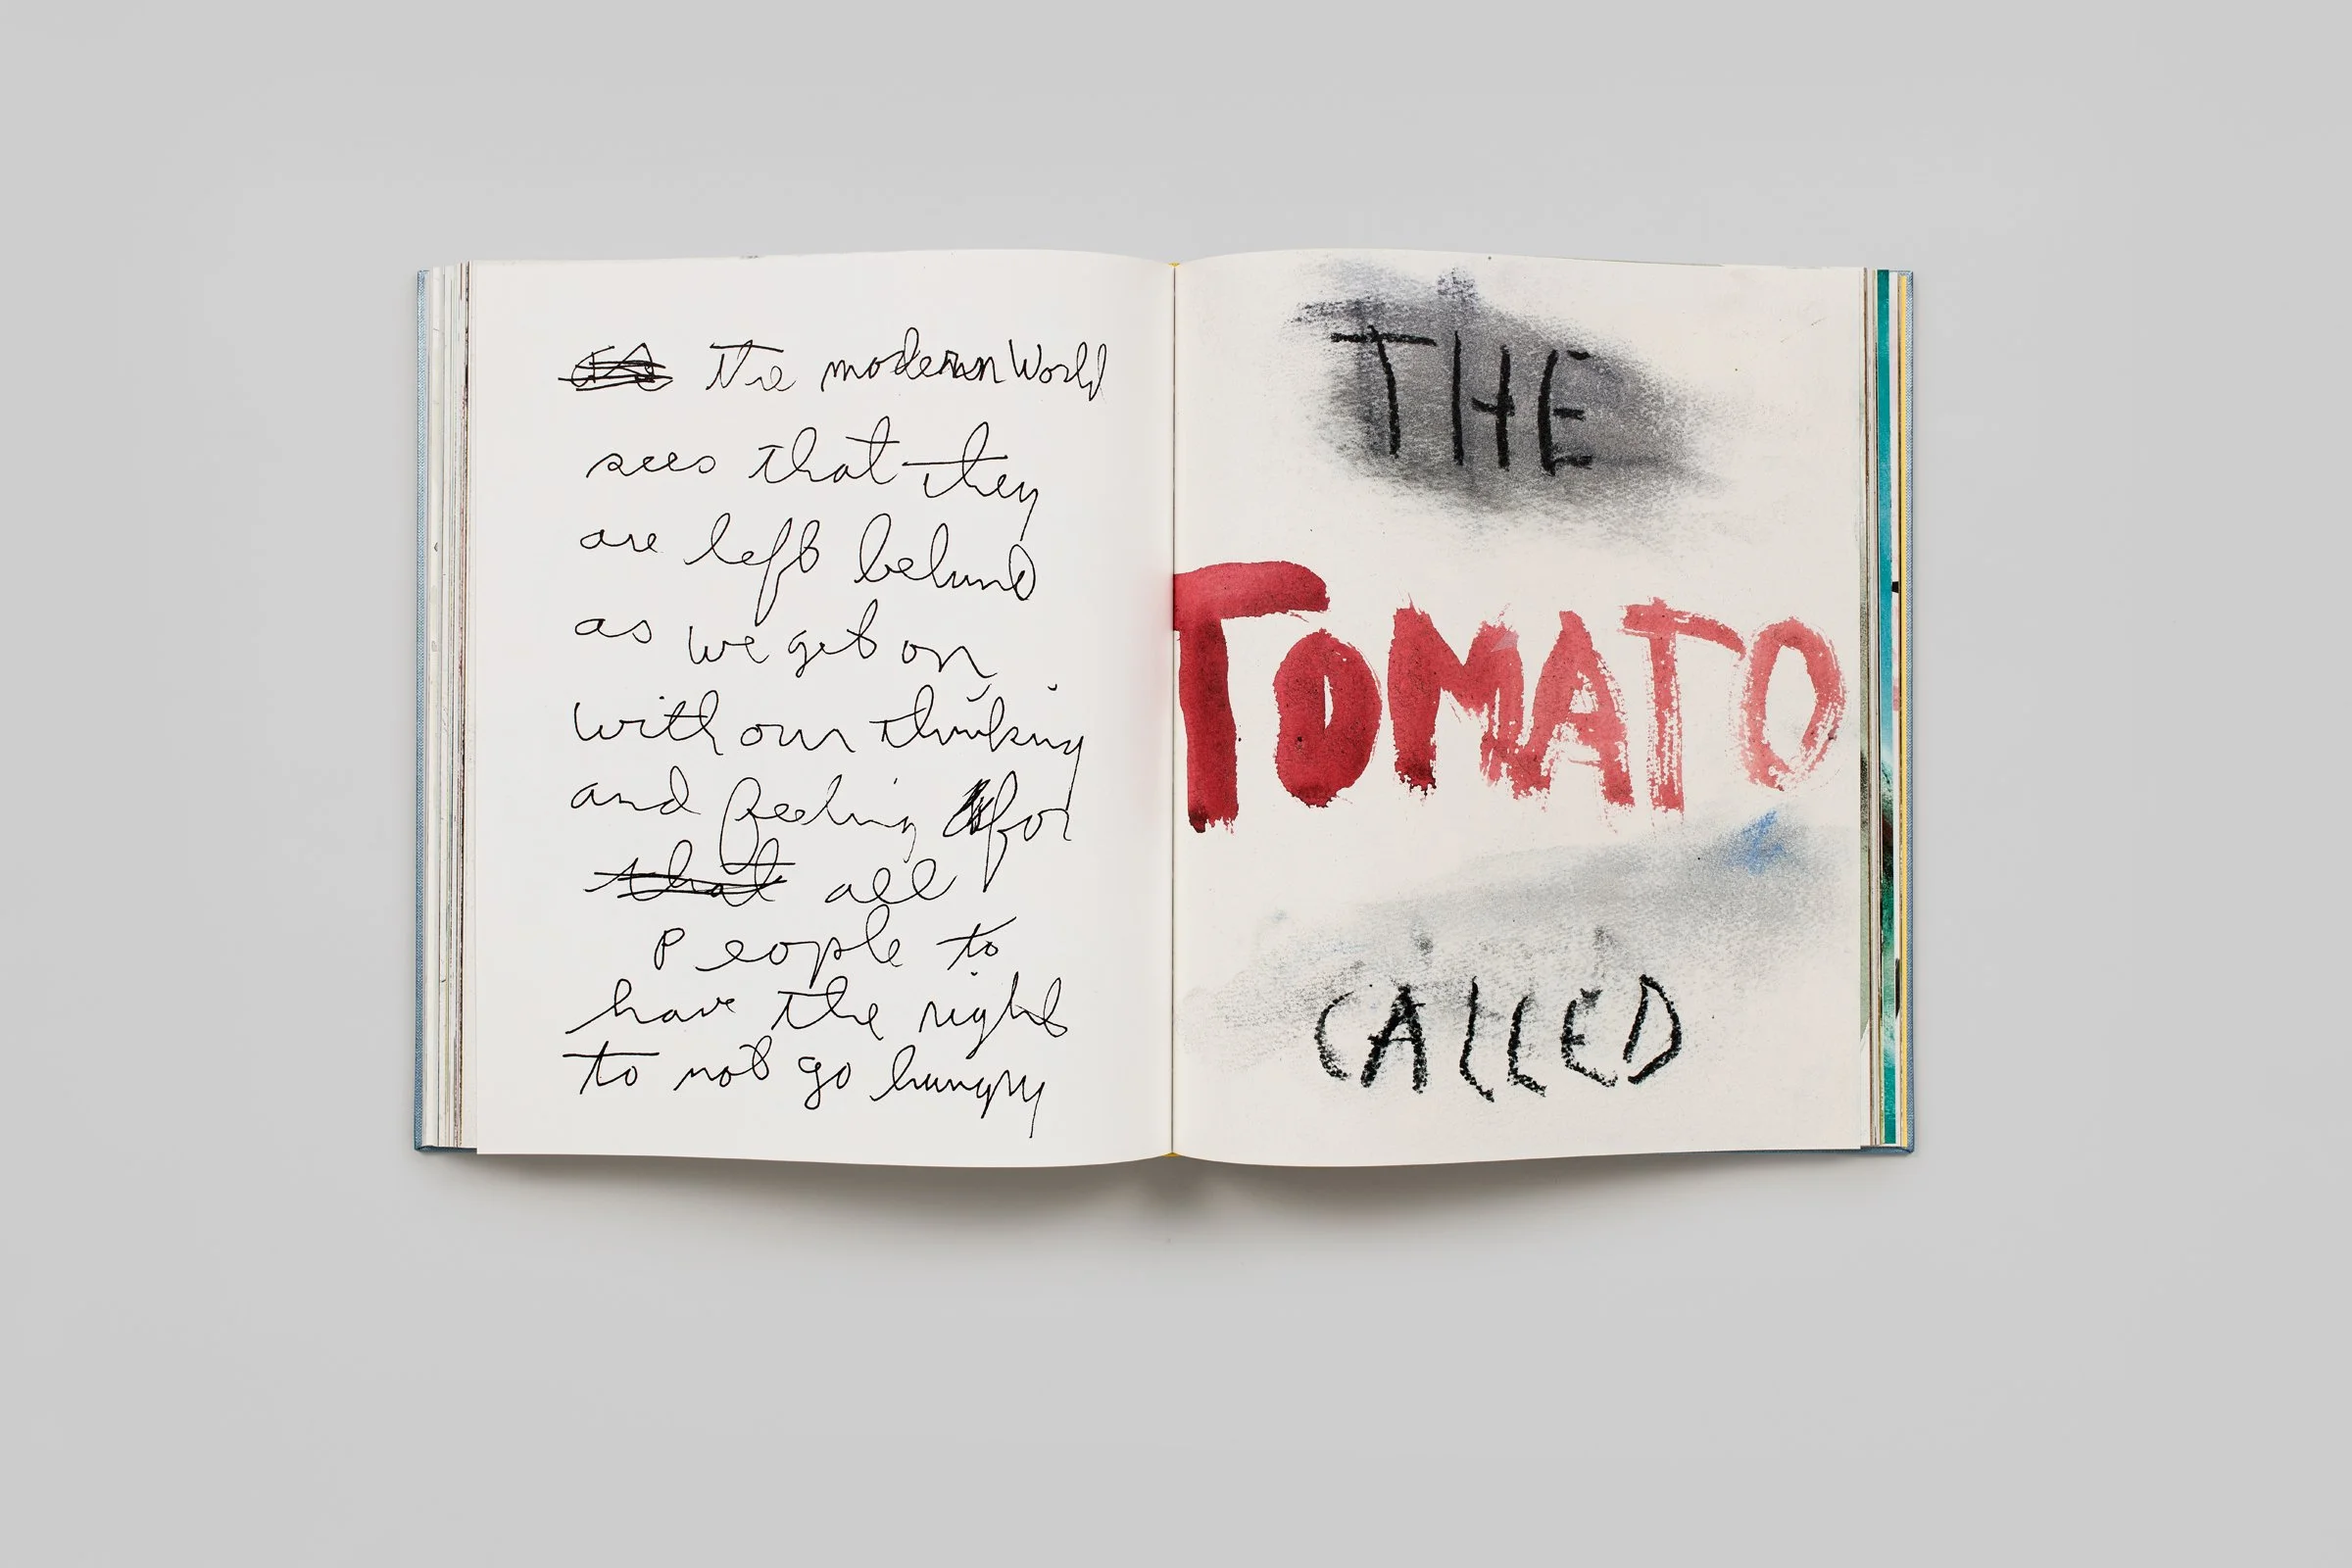 the modern World
sees that they
are left behind
as we get on
with our thinking
and feeling for
that all
People to
have the right
to not go hungry
THE
TOMATO
CALLED